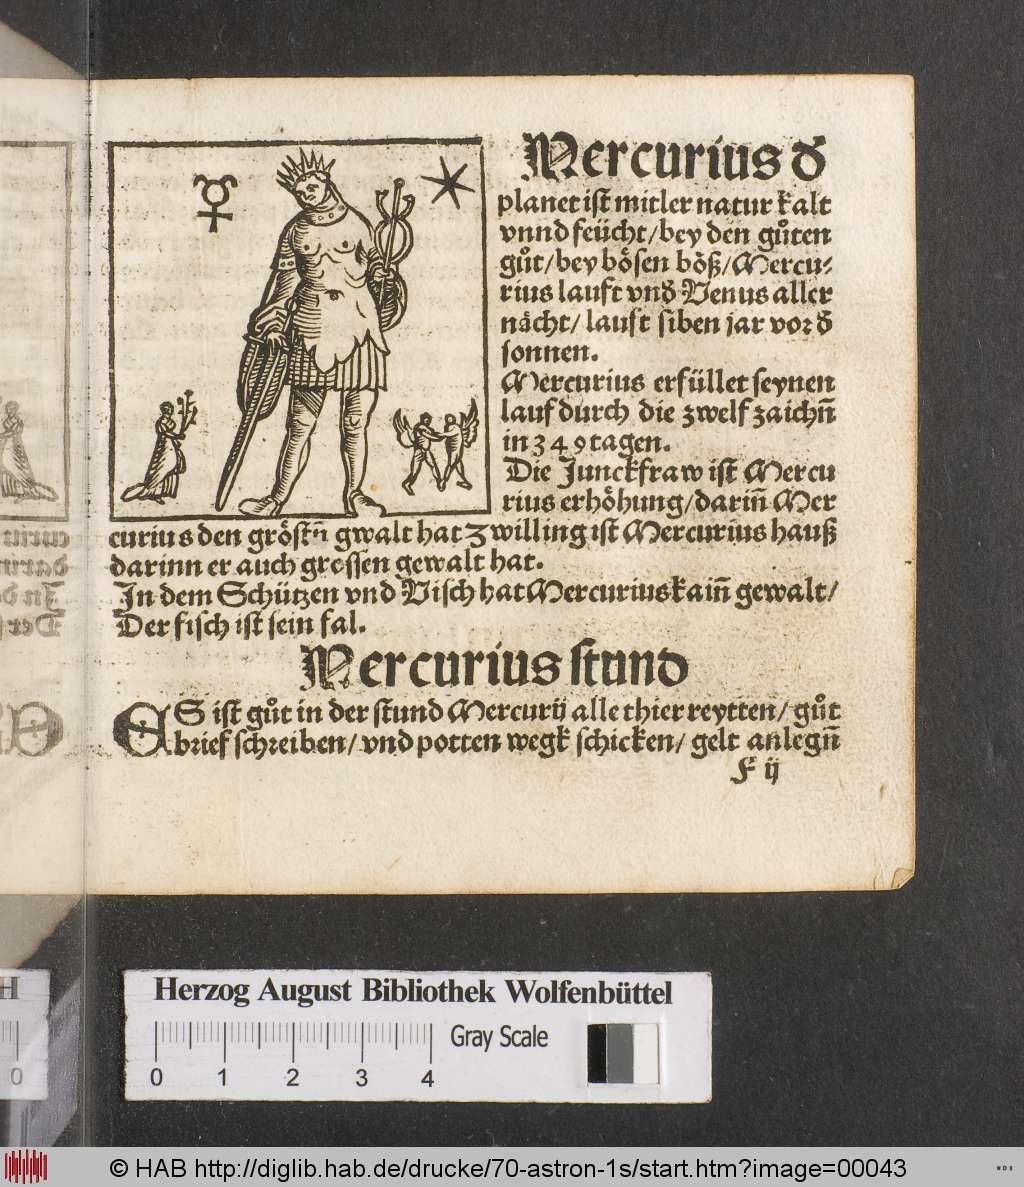 Mercurius đ
planet ist mitler natur kalt
vnnd feücht/bey den gůten
gůt/bey bösen böß/Mercu⸗
rius lauft vnđ Venus aller
nächt/ lauft siben jar vor đ
sonnen.
Mercurius erfüllet seynen
lauf durch die zwelf zaichn̄
in 349 tagen.
Die Junckfraw ist Mercu
rius erhöhung/darin̄ Mer
curius den gröstn̄ gwalt hat Zwilling ist Mercurius hauß
darinn er auch grossen gewalt hat.
In dem Schützen vnd Visch hat Mercurius kain̄ gewalt/
Der fisch ist sein fal.
Mercurius stund
ES ist gůt in der stund Mercurij alle thier reytten/ gůt
brief schreiben/ vnd potten wegk schicken/ gelt anlegn̄
F ij
Herzog August Bibliothek Wolfenbüttel
Gray Scale
0 1 2 3 4
H
0
© HAB http://diglib.hab.de/drucke/70-astron-1s/start.htm?image=00043